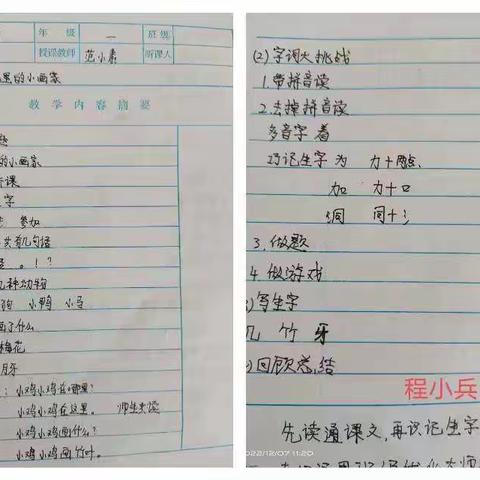 年 级 一 班 级
授课教师 范小素 听课人
里的小画家
教 学 内 容 摘 要
题
的小画家
听课
字
参加
共有几句话
。！？
几种动物
狗 小鸭 小马
画了什么
梅花
月牙
：小鸡小鸡在哪里？
小鸡小鸡在这里。 师生共读
小鸡小鸡画什么？
小鸡小鸡画竹叶。
(2)字词大挑战
1.带拼音读
2.去掉拼音读
多音字 着
巧记生字 为 力+两点
加 力+口
洞 同+氵
3.做题
4.做游戏
)写生字
几 竹 牙
)回顾总结
程小兵
先读通课文，再识记生字
2022/12/07 11:20